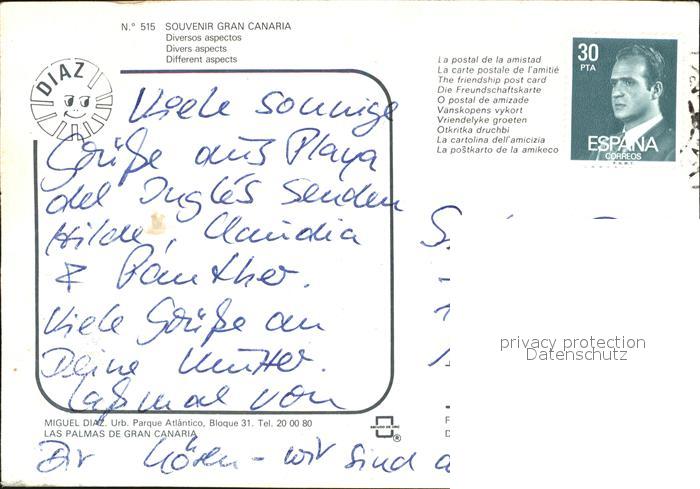 N.° 515 SOUVENIR GRAN CANARIA
Diversos aspectos
Divers aspects
Different aspects
DIAZ
La postal de la amistad
La carte postale de l'amitié
The friendship post card
Die Freundschaftskarte
O postal de amizade
Vanskopens vykort
Vriendelyke groeten
Otkritka druchbi
La cartolina dell'amicizia
La poŝtkarto de la amikeco
30
PTA
ESPAÑA
CORREOS
F.N.M.T.
Viele sonnige
Grüße aus Playa
del Inglés senden
Hilde, Claudia
& Panther.
Viele Grüße an
Deine Mutter.
Laß mal von
Dir hören - wir sind
privacy protection
Datenschutz
MIGUEL DIAZ. Urb. Parque Atlántico, Bloque 31. Tel. 20 00 80
LAS PALMAS DE GRAN CANARIA